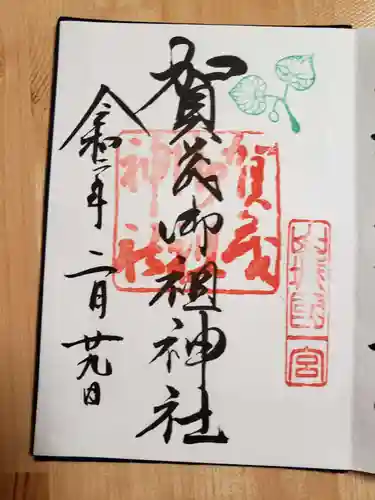 賀茂御祖神社
山城國
一宮
賀茂御祖神社
令和二年二月廿九日